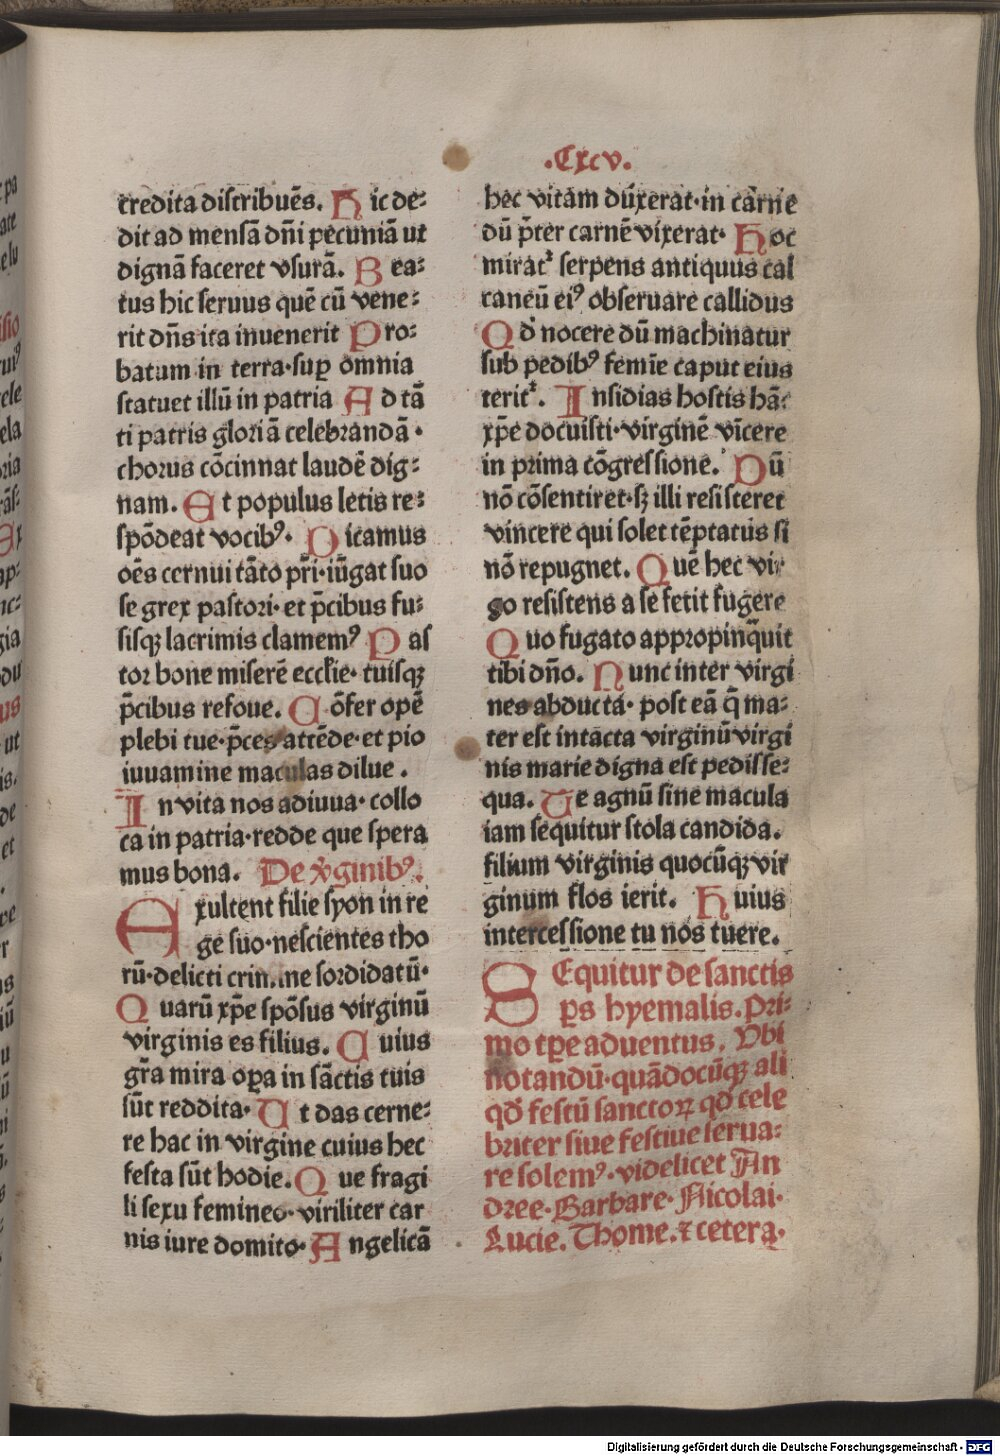 .Cxcv.
credita distribuēs. Hic de⸗
dit ad mensā dn̄i pecuniā ut
dignā faceret vsurā. Bea⸗
tus hic seruus quē cū vene⸗
rit dn̄s ita inuenerit Pro⸗
batum in terra·suꝑ omnia
statuet illū in patria Ad tā
ti patris gloriā celebrandā·
chorus cōcinnat laudē dig⸗
nam. Et populus letis re⸗
spōdeat vocibꝰ. Dicamus
oēs cernui tāto pr̄i·iūgat suo
se grex pastori·et p̄cibus fu⸗
sisqꝫ lacrimis clamemꝰ Pas
tor bone miserē eccl̄ie·tuisqꝫ
p̄cibus refoue. Cōfer opē
plebi tue·p̄ces attēde·et pio
iuuamine maculas dilue.
In vita nos adiuua·collo
ca in patria·redde que spera
mus bona. De v̄ginibꝰ.
Exultent filie syon in re
ge suo·nescientes tho
rū·delicti crimine sordidatū·
Quarū xp̄e spōsus virginū
virginis es filius. Cuius
gr̄a mira oꝑa in sāctis tuis
sūt reddita· Ut das cerne⸗
re hac in virgine cuius hec
festa sūt hodie. Que fragi
li sexu femineo·viriliter car
nis iure domito· Angelicā
hec vitam duxerat·in carne
dū p̄ter carnē vixerat· Hoc
mirat᷑ serpens antiquus cal
caneū eiꝰ obseruare callidus
Qd̄ nocere dū machinatur
sub pedibꝰ femīe caput eius
terit᷑. Insidias hostis hāc
xp̄e docuisti·virginē vicere
in prima cōgressione. Dū
nō cōsentiret·sꝫ illi resisteret
vincere qui solet tēptatus si
nō repugnet. Quē hec vir
go resistens a se fecit fugere
Quo fugato appropinq̄uit
tibi dn̄o. Nunc inter virgi
nes abducta· post eā q̄ ma⸗
ter est intacta virginū virgi
nis marie digna est pedisse⸗
qua. Te agnū sine macula
iam sequitur stola candida.
filium virginis quocūqꝫ vir
ginum flos ierit. Huius
intercessione tu nos tuere.
SEquitur de sanctis
ꝑs hyemalis. Pri⸗
mo tꝑe aduentus. Vbi
notandū·quādocūqꝫ ali
qd̄ festū sanctoꝝ qd̄ cele
briter siue festiue serua⸗
re solemꝰ·videlicet An
dree·Barbare·Nicolai·
Lucie. Thome. ⁊ cetera·
Digitalisierung gefördert durch die Deutsche Forschungsgemeinschaft - DFG